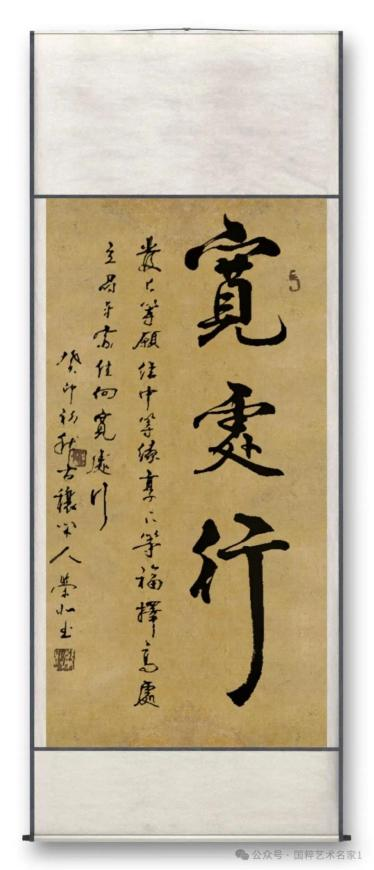 寬處行
發上等願結中等緣享下等福擇高處
立尋平處住向寬處行
癸卯初秋古穰堂人榮汜書
公众号·国粹艺术名家1